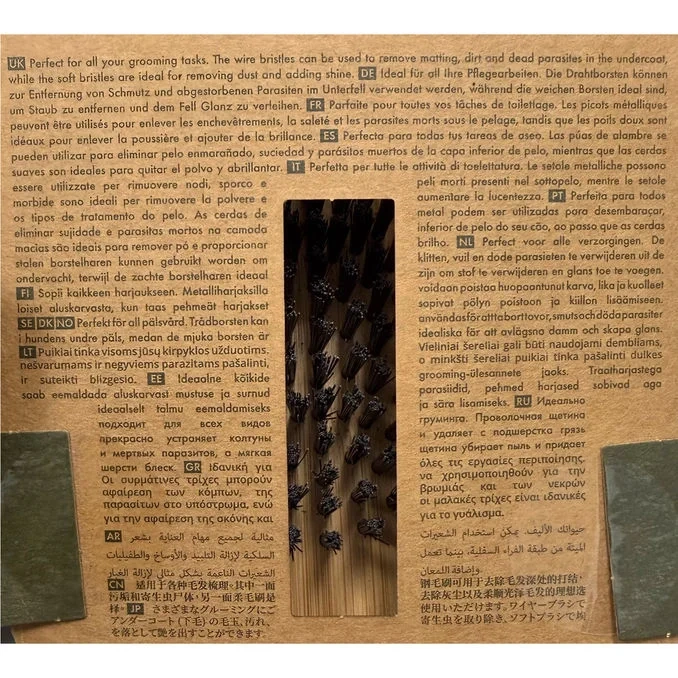 UK Perfect for all your grooming tasks. The wire bristles can be used to remove matting, dirt and dead parasites in the undercoat,
while the soft bristles are ideal for removing dust and adding shine. DE Ideal für all Ihre Pflegearbeiten. Die Drahtborsten können
zur Entfernung von Schmutz und abgestorbenen Parasiten im Unterfell verwendet werden, während die weichen Borsten ideal sind,
um Staub zu entfernen und dem Fell Glanz zu verleihen. FR Parfaite pour toutes vos tâches de toilettage. Les picots métalliques
peuvent être utilisés pour enlever les enchevêtrements, la saleté et les parasites morts sous le pelage, tandis que les poils doux sont
idéaux pour enlever la poussière et ajouter de la brillance. ES Perfecta para todas tus tareas de aseo. Las púas de alambre se
pueden utilizar para eliminar pelo enmarañado, suciedad y parásitos muertos de la capa inferior de pelo, mientras que las cerdas
suaves son ideales para quitar el polvo y abrillantar. IT Perfetto per tutte le attività di toelettatura. Le setole metalliche possono
essere utilizzate per rimuovere nodi, sporco e peli morti presenti nel sottopelo, mentre le setole
morbide sono ideali per rimuovere la polvere e aumentare la lucentezza. PT Perfeita para todos
os tipos de tratamento do pelo. As cerdas de metal podem ser utilizadas para desembaraçar,
eliminar sujidade e parasitas mortos na camada inferior do seu cão, ao passo que as cerdas
macias são ideais para remover pó e proporcionar brilho. NL Perfect voor alle verzorgingen. De
stalen borstelharen kunnen gebruikt worden om klitten, vuil en dode parasieten te verwijderen uit de
ondervacht, terwijl de zachte borstelharen ideaal zijn om stof te verwijderen en glans toe te voegen.
FI Sopii kaikkeen harjaukseen. Metalliharjaksilla voidaan poistaa huopaantunut karva, lika ja kuolleet
loiset aluskarvasta, kun taas pehmeät harjakset sopivat pölyn poistoon ja kiillon lisäämiseen.
SE DK NO Perfekt för all pälsvård. Trådborsten kan användas för att ta bort tovor, smuts och döda parasiter
i hundens undre päls, medan de mjuka borsten är idealiska för att avlägsna damm och skapa glans.
LT Puikiai tinka visoms jūsų kirpyklos užduotims. Vieliniai šereliai gali būti naudojami dembliams,
nešvarumams ir negyviems parazitams pašalinti, o minkšti šereliai puikiai tinka pašalinti dulkes
ir suteikti blizgesio. EE Ideaalne kõikide grooming-ülesannete jaoks. Traatharjastega
saab eemaldada aluskarvast mustuse ja surnud parasiidid, pehmed harjased sobivad aga
ideaalselt talmu eemaldamiseks ja sära lisamiseks. RU Идеально
подходит для всех видов груминга. Проволочная щетина
прекрасно устраняет колтуны и удаляет с подшерстка грязь
и мертвых паразитов, а мягкая щетина убирает пыль и придает
шерсти блеск. GR Ιδανική για όλες τις εργασίες περιποίησης.
Οι συρμάτινες τρίχες μπορούν να χρησιμοποιηθούν για την
αφαίρεση των κόμπων, της βρωμιάς και των νεκρών
παρασίτων στο υπόστρωμα, ενώ οι μαλακές τρίχες είναι ιδανικές
για την αφαίρεση της σκόνης και για το γυάλισμα.
AR مثالية لجميع مهام العناية بشعر حيواناتك الأليف. يمكن استخدام الشعيرات
السلكية لإزالة التلبيد والأوساخ والطفيليات الميتة من طبقة الفراء السفلية، بينما تعمل
الشعيرات الناعمة بشكل مثالي لإزالة الغبار وإضافة اللمعان
CN 适用于各种毛发梳理。其中一面 钢毛刷可用于去除毛发深处的打结、
污垢和寄生虫尸体，另一面柔毛刷是 去除灰尘以及柔顺光泽毛发的理想选
择。 JP さまざまなグルーミングにご 使用いただけます。ワイヤーブラシで
アンダーコート (下毛) の毛玉、汚れ、 寄生虫を取り除き、ソフトブラシで埃
を落として艶を出すことができます。